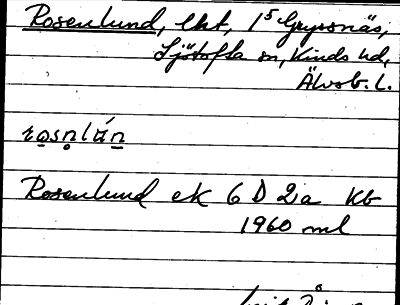 Rosenlund, lht, 1⁵ Grytsnäs,
Sjötofta sn, Kinds hd,
Älvsb. l.
Rosenlund ek 6 D 2a Kb
1960 ml